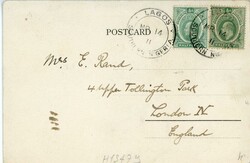 POSTCARD
LAGOS
Mrs E. Rand,
4 Upper Tollington Park
London N.
England